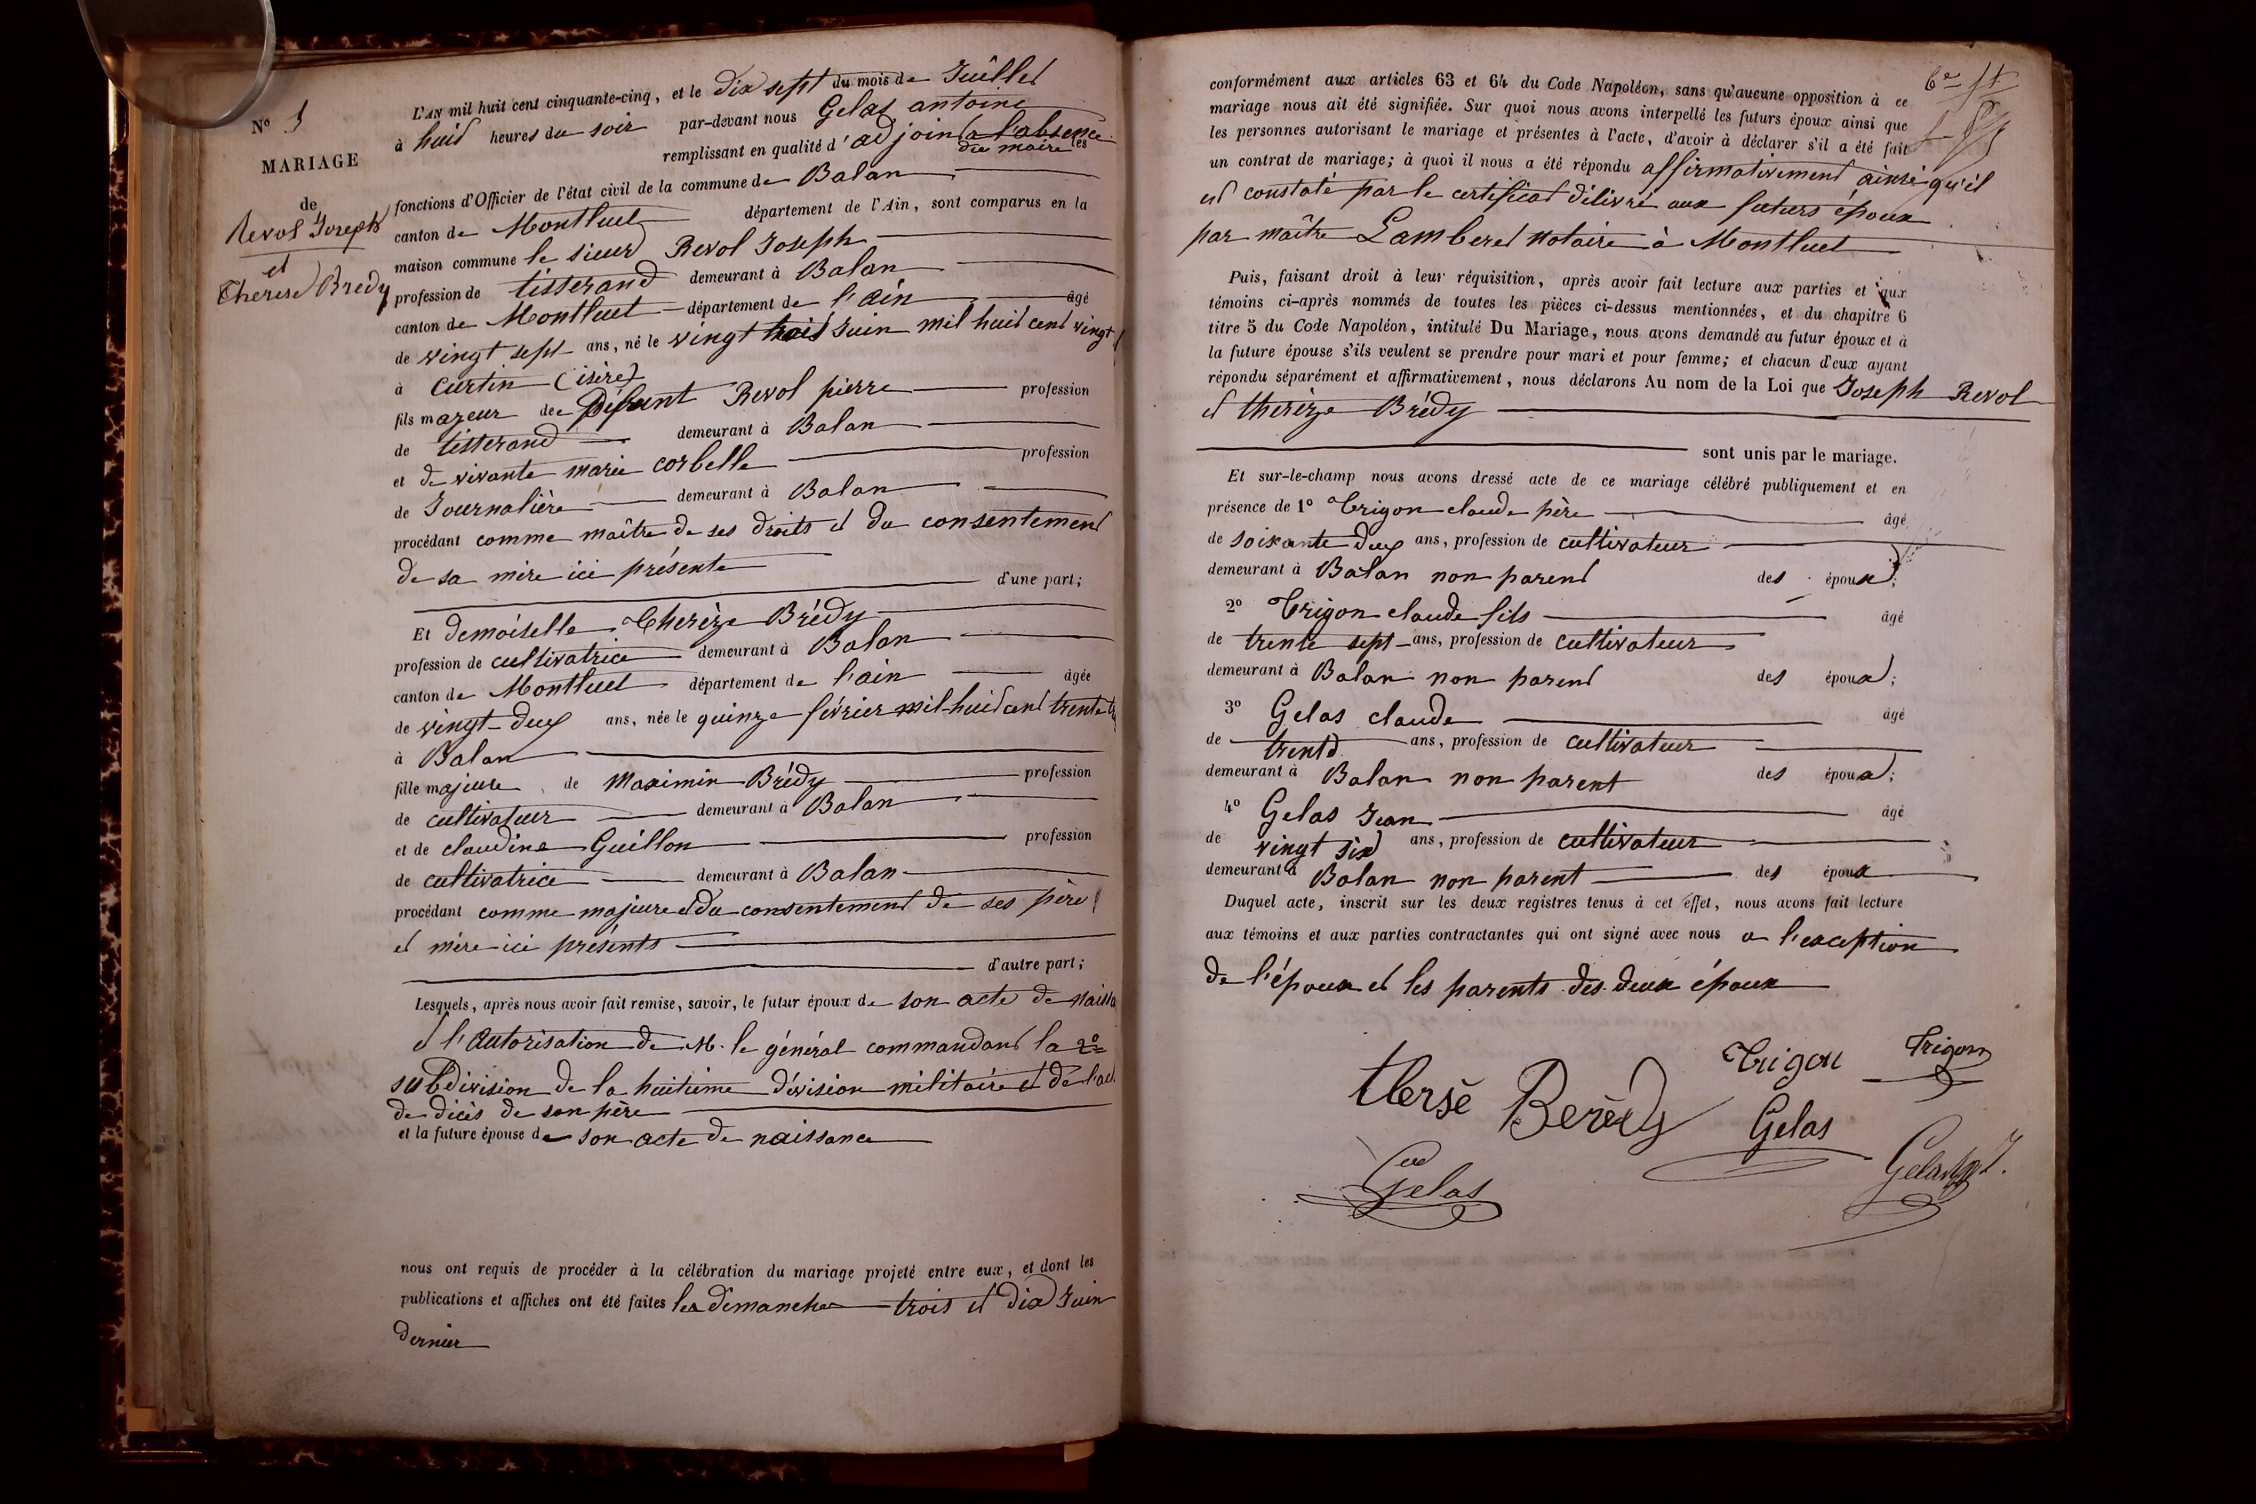 L'AN mil huit cent cinquante-cinq, et le dix sept du mois de Juillet
à huit heures du soir par-devant nous Gelas antoine
remplissant en qualité d'adjoint a l'absence
du maire les
N°
MARIAGE
de
Revol Joseph
et
Therese Brédy
fonctions d'Officier de l'état civil de la commune de Balan
canton de Montluel département de l'Ain, sont comparus en la
maison commune le sieur Revol Joseph
profession de tisserand demeurant à Balan
canton de Montluel département de l'ain âgé
de vingt sept ans, né le vingt trois Juin mil huit cent vingt
à Curtin (isère)
fils mageur de Défunt Revol pierre profession
de tisserand demeurant à Balan
et de vivante marie corbelle profession
de Journalière demeurant à Balan
procédant comme maître de ses droits et du consentement
de sa mère ici présente
d'une part;
Et demoiselle Therèze Brédy
profession de cultivatrice demeurant à Balan
canton de Montluel département de l'ain âgée
de vingt-deux ans, née le quinze février mil-huit cent trente
à Balan
fille majeure de Maximin Brédy profession
de cultivateur demeurant à Balan
et de claudine Guillon profession
de cultivatrice demeurant à Balan
procédant comme majeure et du consentement de ses père
et mère ici présents
d'autre part;
Lesquels, après nous avoir fait remise, savoir, le futur époux de son acte de naissa
et l'autorisation de M. le général commandant la 2e
subdivision de la huitième division militaire et de l'act
de décès de son père
et la future épouse de son acte de naissance
nous ont requis de procéder à la célébration du mariage projeté entre eux, et dont les
publications et affiches ont été faites les dimanches trois et dix Juin
dernier
conformément aux articles 63 et 64 du Code Napoléon, sans qu'aucune opposition à ce
mariage nous ait été signifiée. Sur quoi nous avons interpellé les futurs époux ainsi que
les personnes autorisant le mariage et présentes à l'acte, d'avoir à déclarer s'il a été fait
un contrat de mariage; à quoi il nous a été répondu affirmativement ainsi qu'il
est constaté par le certificat délivré aux futurs époux
par maître Lamberet Notaire à Montluel
Puis, faisant droit à leur réquisition, après avoir fait lecture aux parties et aux
témoins ci-après nommés de toutes les pièces ci-dessus mentionnées, et du chapitre 6
titre 5 du Code Napoléon, intitulé Du Mariage, nous avons demandé au futur époux et à
la future épouse s'ils veulent se prendre pour mari et pour femme; et chacun d'eux ayant
répondu séparément et affirmativement, nous déclarons Au nom de la Loi que Joseph Revol
et therèze Brédy
sont unis par le mariage.
Et sur-le-champ nous avons dressé acte de ce mariage célébré publiquement et en
présence de 1° Trigon claude père âgé
de soixante deux ans, profession de cultivateur
demeurant à Balan non parent des époux;
2° Trigon claude fils âgé
de trente sept ans, profession de cultivateur
demeurant à Balan non parent des époux;
3° Gelas claude âgé
de trente ans, profession de cultivateur
demeurant à Balan non parent des époux;
4° Gelas Jean âgé
de vingt six ans, profession de cultivateur
demeurant à Balan non parent des époux
Duquel acte, inscrit sur les deux registres tenus à cet effet, nous avons fait lecture
aux témoins et aux parties contractantes qui ont signé avec nous a l'exception
de l'époux et les parents des deux époux
Trigon Trigon
thersè Berèdy
Gelas
Gelas
Gelas